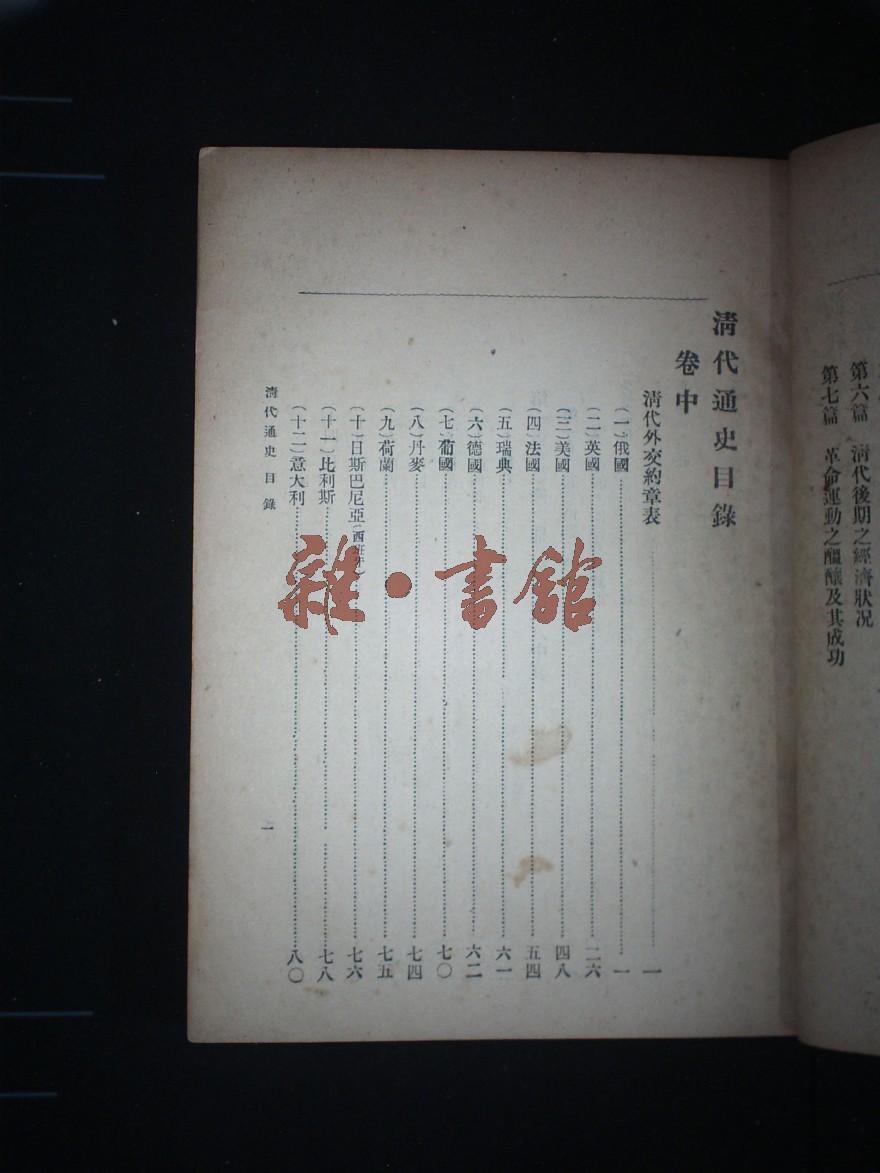 第六篇 清代後期之經濟狀况
第七篇 革命運動之醞釀及其成功
清代通史目錄
卷中
清代外交約章表……一
(一)俄國……一
(二)英國……二六
(三)美國……四八
(四)法國……五四
(五)瑞典……六一
(六)德國……六二
(七)葡國……七〇
(八)丹麥……七四
(九)荷蘭……七五
(十)日斯巴尼亞(西班牙)……七六
(十一)比利斯……七八
(十二)意大利……八〇
清代通史 目錄
一
雜·書館